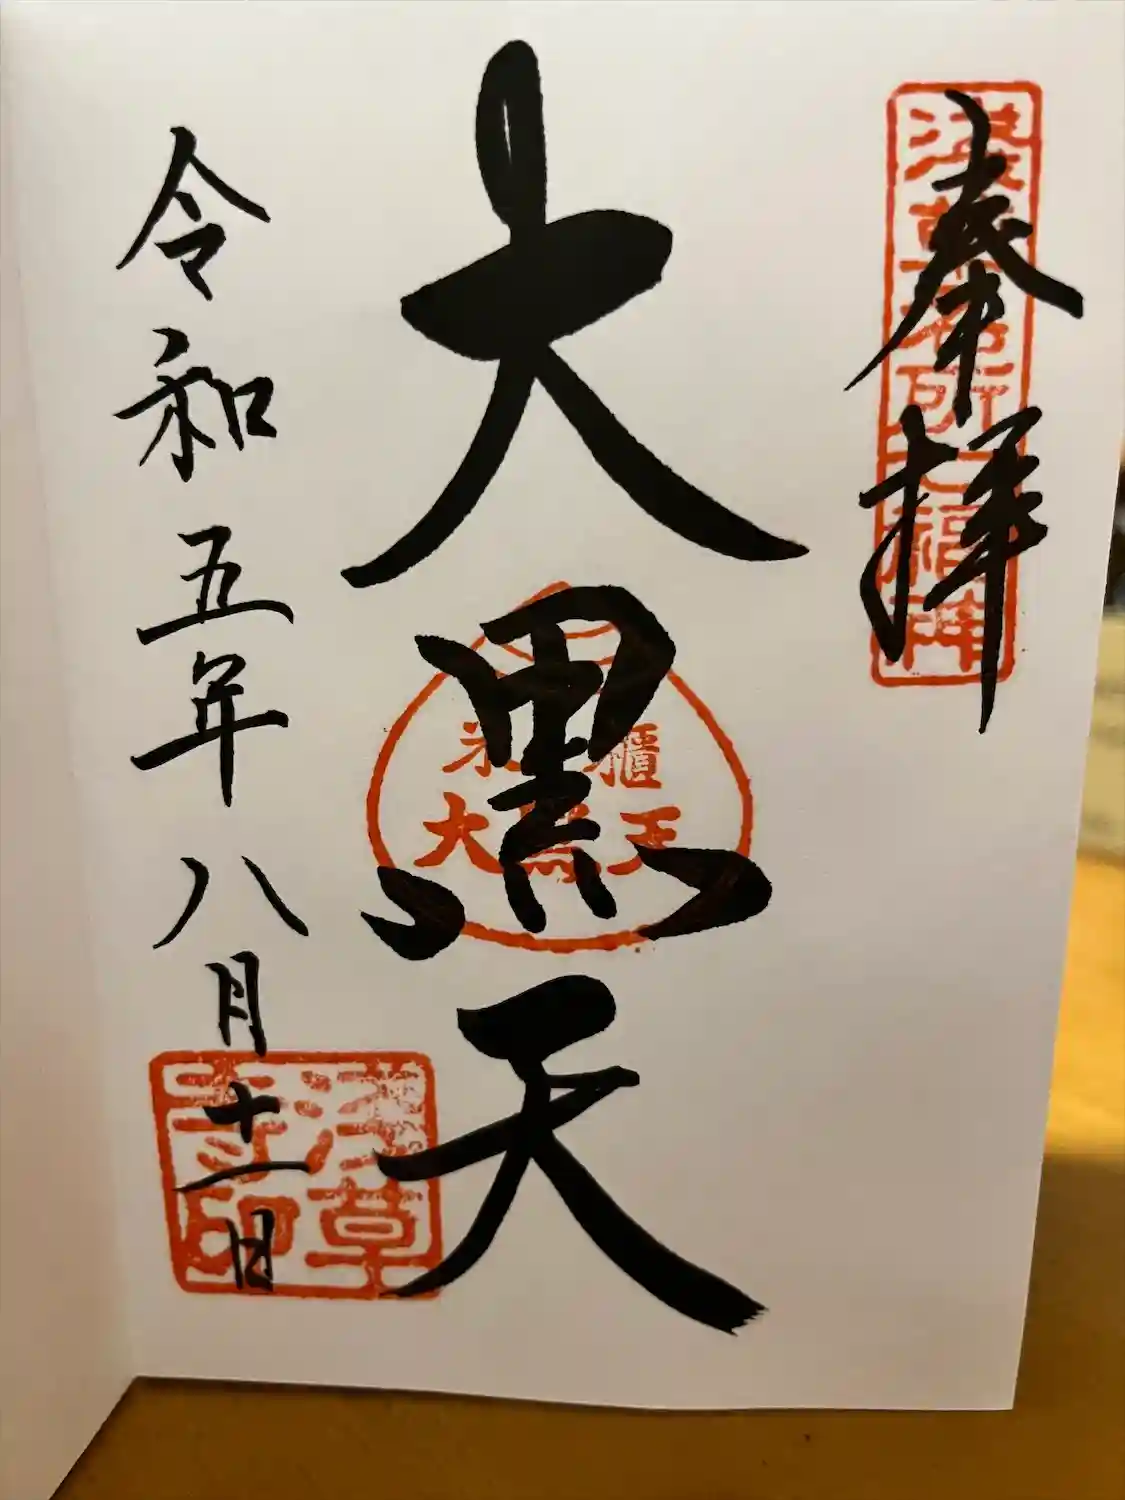 奉拝
浅草名所七福神
大黒天
米櫃
大黒天
令和五年八月十一日
浅草寺印